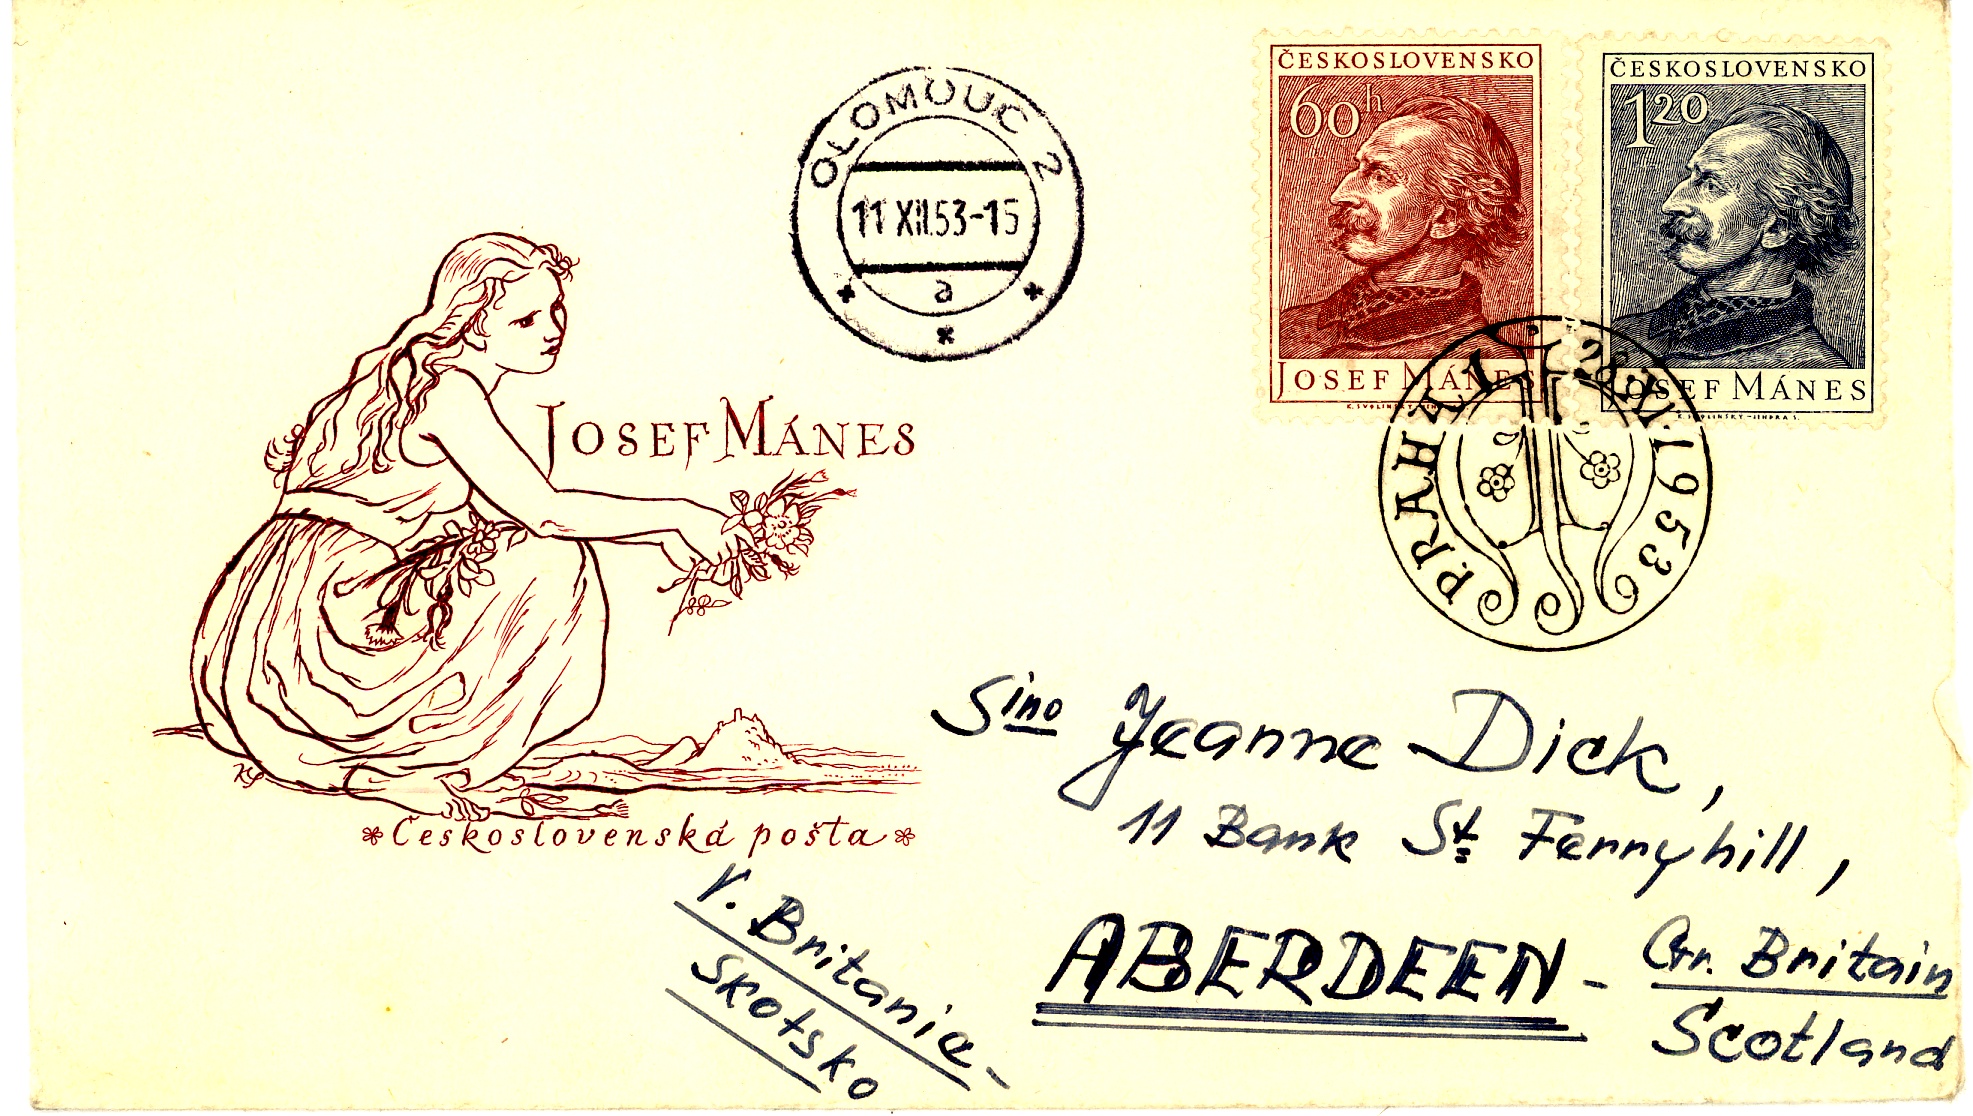 OLOMOUC 2
11 XII.53-15
a
ČESKOSLOVENSKO
60h
JOSEF MÁNES
ČESKOSLOVENSKO
1 20
JOSEF MÁNES
K. SVOLINSKÝ-JINDRA S.
PRAHA 1
1953
JOSEF MÁNES
Československá pošta
Sino Jeanne Dick,
11 Bank St Ferryhill,
ABERDEEN - Gr. Britain
Scotland
V. Britanie-
Skotsko